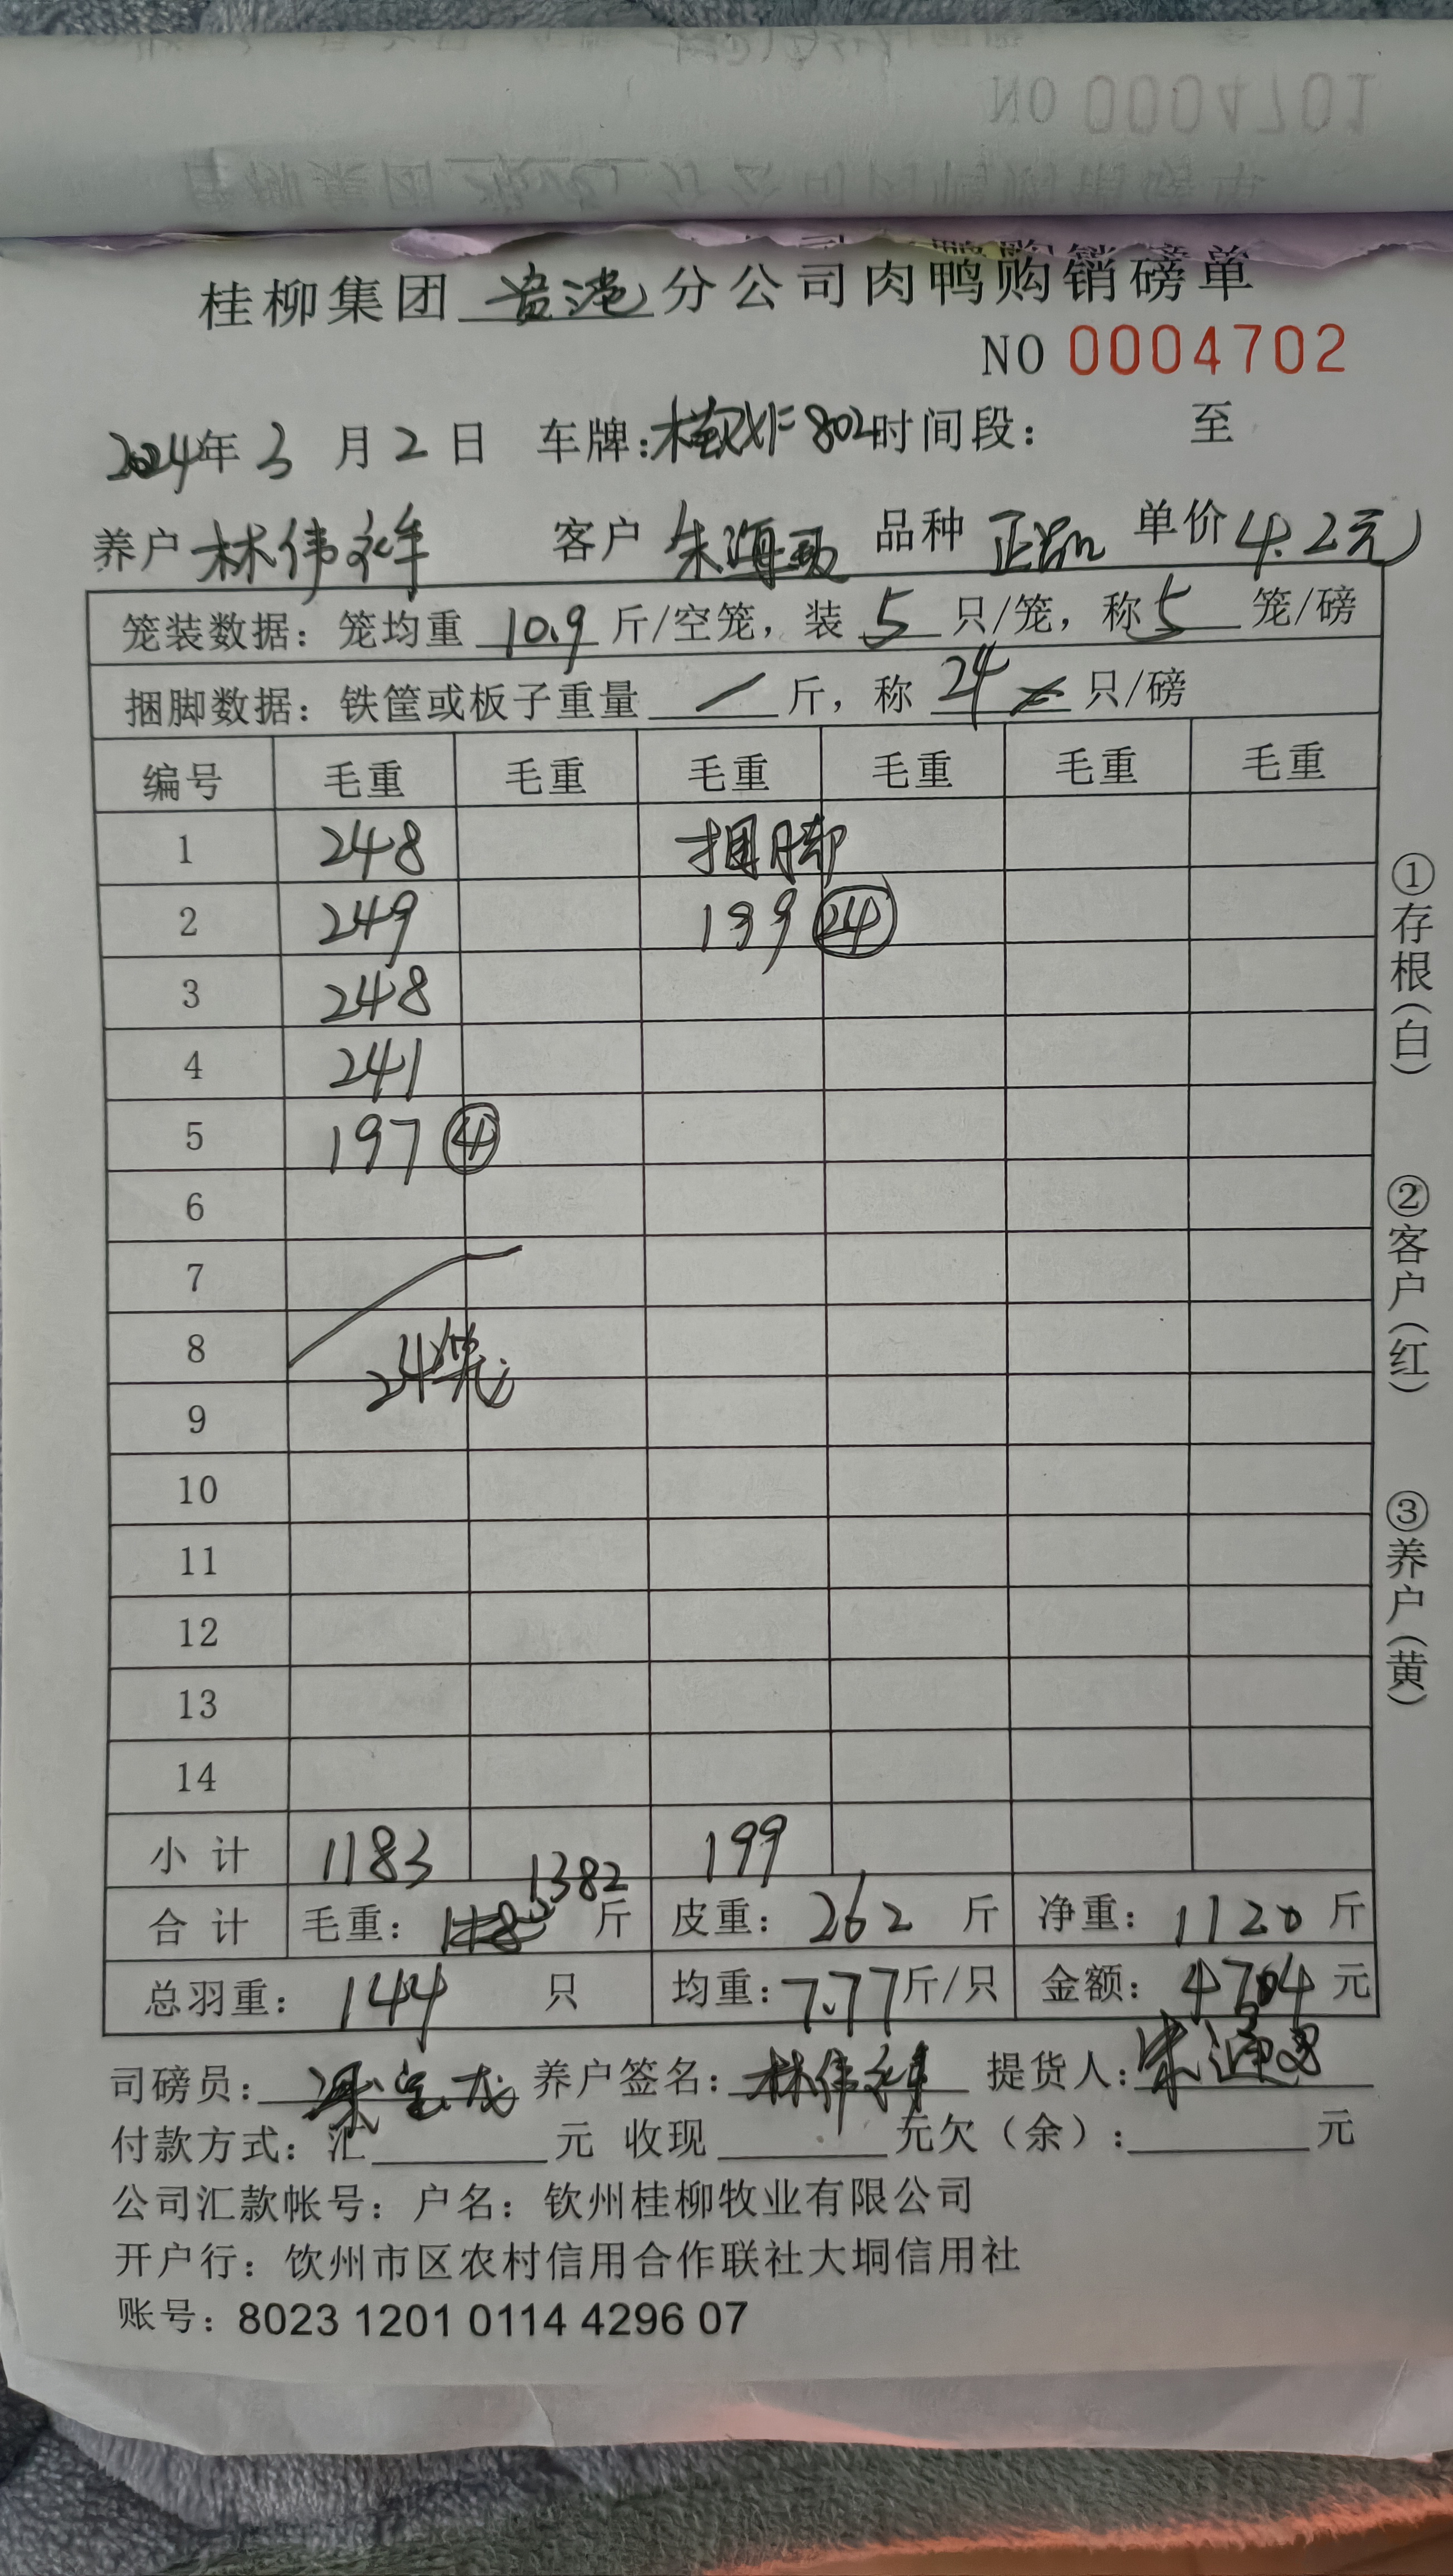 NO 0004701
桂柳集团贵港分公司肉鸭购销磅单
NO 0004702
2024年3月2日 车牌: 802 时间段: 至
养户 林伟祥 客户 朱海 品种 正品 单价 4.2元
笼装数据: 笼均重 10.9 斤/空笼, 装 5 只/笼, 称 5 笼/磅
捆脚数据: 铁筐或板子重量 / 斤, 称 24 只/磅
编号 毛重 毛重 毛重 毛重 毛重 毛重
1 248 捆脚
2 249 199 24
3 248
4 241
5 197 ④
6
7
8 24笼
9
10
11
12
13
14
小计 1183 199
合计 毛重: 1382 斤 皮重: 262 斤 净重: 1120 斤
总羽重: 144 只 均重: 7.77 斤/只 金额: 4704 元
司磅员: 梁 龙 养户签名: 林伟祥 提货人: 朱
付款方式: 汇 元 收现 元 欠(余): 元
公司汇款帐号: 户名: 钦州桂柳牧业有限公司
开户行: 饮州市区农村信用合作联社大垌信用社
账号: 8023 1201 0114 4296 07
①存根(白)
②客户(红)
③养户(黄)